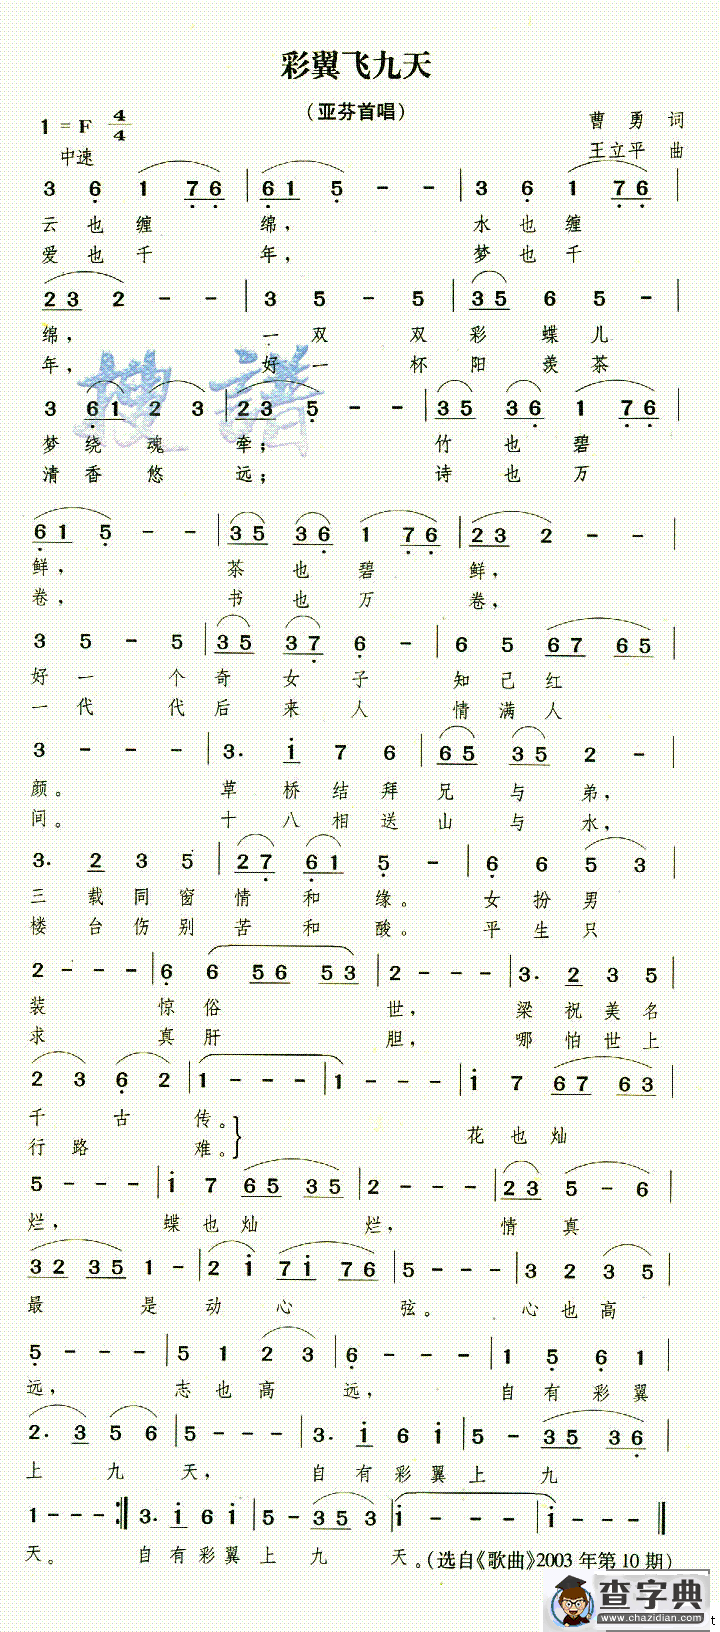 彩翼飞九天
（亚芬首唱）
1=F 4/4
曹勇 词
中速
王立平 曲
3 6 1 7 6 | 6 1 5 - - | 3 6 1 7 6 |
云也缠绵， 水也缠
爱也千年， 梦也千
2 3 2 - - | 3 5 - 5 | 3 5 6 5 - |
绵， 一双双彩蝶儿
年， 好一杯阳羡茶
3 6 1 2 3 | 2 3 5 - - | 3 5 3 6 1 7 6 |
梦绕魂牵； 竹也碧
清香悠远； 诗也万
6 1 5 - - | 3 5 3 6 1 7 6 | 2 3 2 - - |
鲜， 茶也碧鲜，
卷， 书也万卷，
3 5 - 5 | 3 5 3 7 6 - | 6 5 6 7 6 5 |
好一个奇女子 知己红
一代代后来人 情满人
3 - - - | 3. i 7 6 | 6 5 3 5 2 - |
颜。 草桥结拜兄与弟，
间。 十八相送山与水，
3. 2 3 5 | 2 7 6 1 5 - | 6 6 5 3 |
三载同窗情和缘。 女扮男
楼台伤别苦和酸。 平生只
2 - - - | 6 6 5 6 5 3 | 2 - - - | 3. 2 3 5 |
装 惊俗世， 梁祝美名
求 真肝胆， 哪怕世上
2 3 6 2 | 1 - - - | 1 - - - | i 7 6 7 6 3 |
千古传。 花也灿
行路难。
5 - - - | i 7 6 5 3 5 | 2 - - - | 2 3 5 - 6 |
烂， 蝶也灿烂， 情真
3 2 3 5 1 - | 2 i 7 i 7 6 | 5 - - - | 3 2 3 5 |
最是动心弦。 心也高
5 - - - | 5 1 2 3 | 6 - - - | 1 5 6 1 |
远， 志也高远， 自有彩翼
2. 3 5 6 | 5 - - - | 3. i 6 i | 5 - 3 5 3 6 |
上九天， 自有彩翼上九
1 - - :‖ 3. i 6 i | 5 - 3 5 3 | i - - - | i - - - ‖
天。 自有彩翼上九天。(选自《歌曲》2003年第10期)
查字典
www.chazidian.com
t